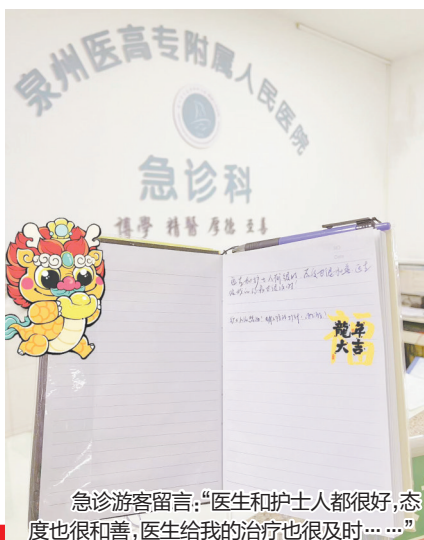 泉州医高专附属人民医院
急诊科
博學 精醫 厚德 至善
医生和护士人都很好,态度也很和善,医生
龍年
大吉
福
急诊游客留言:“医生和护士人都很好,态
度也很和善,医生给我的治疗也很及时……”